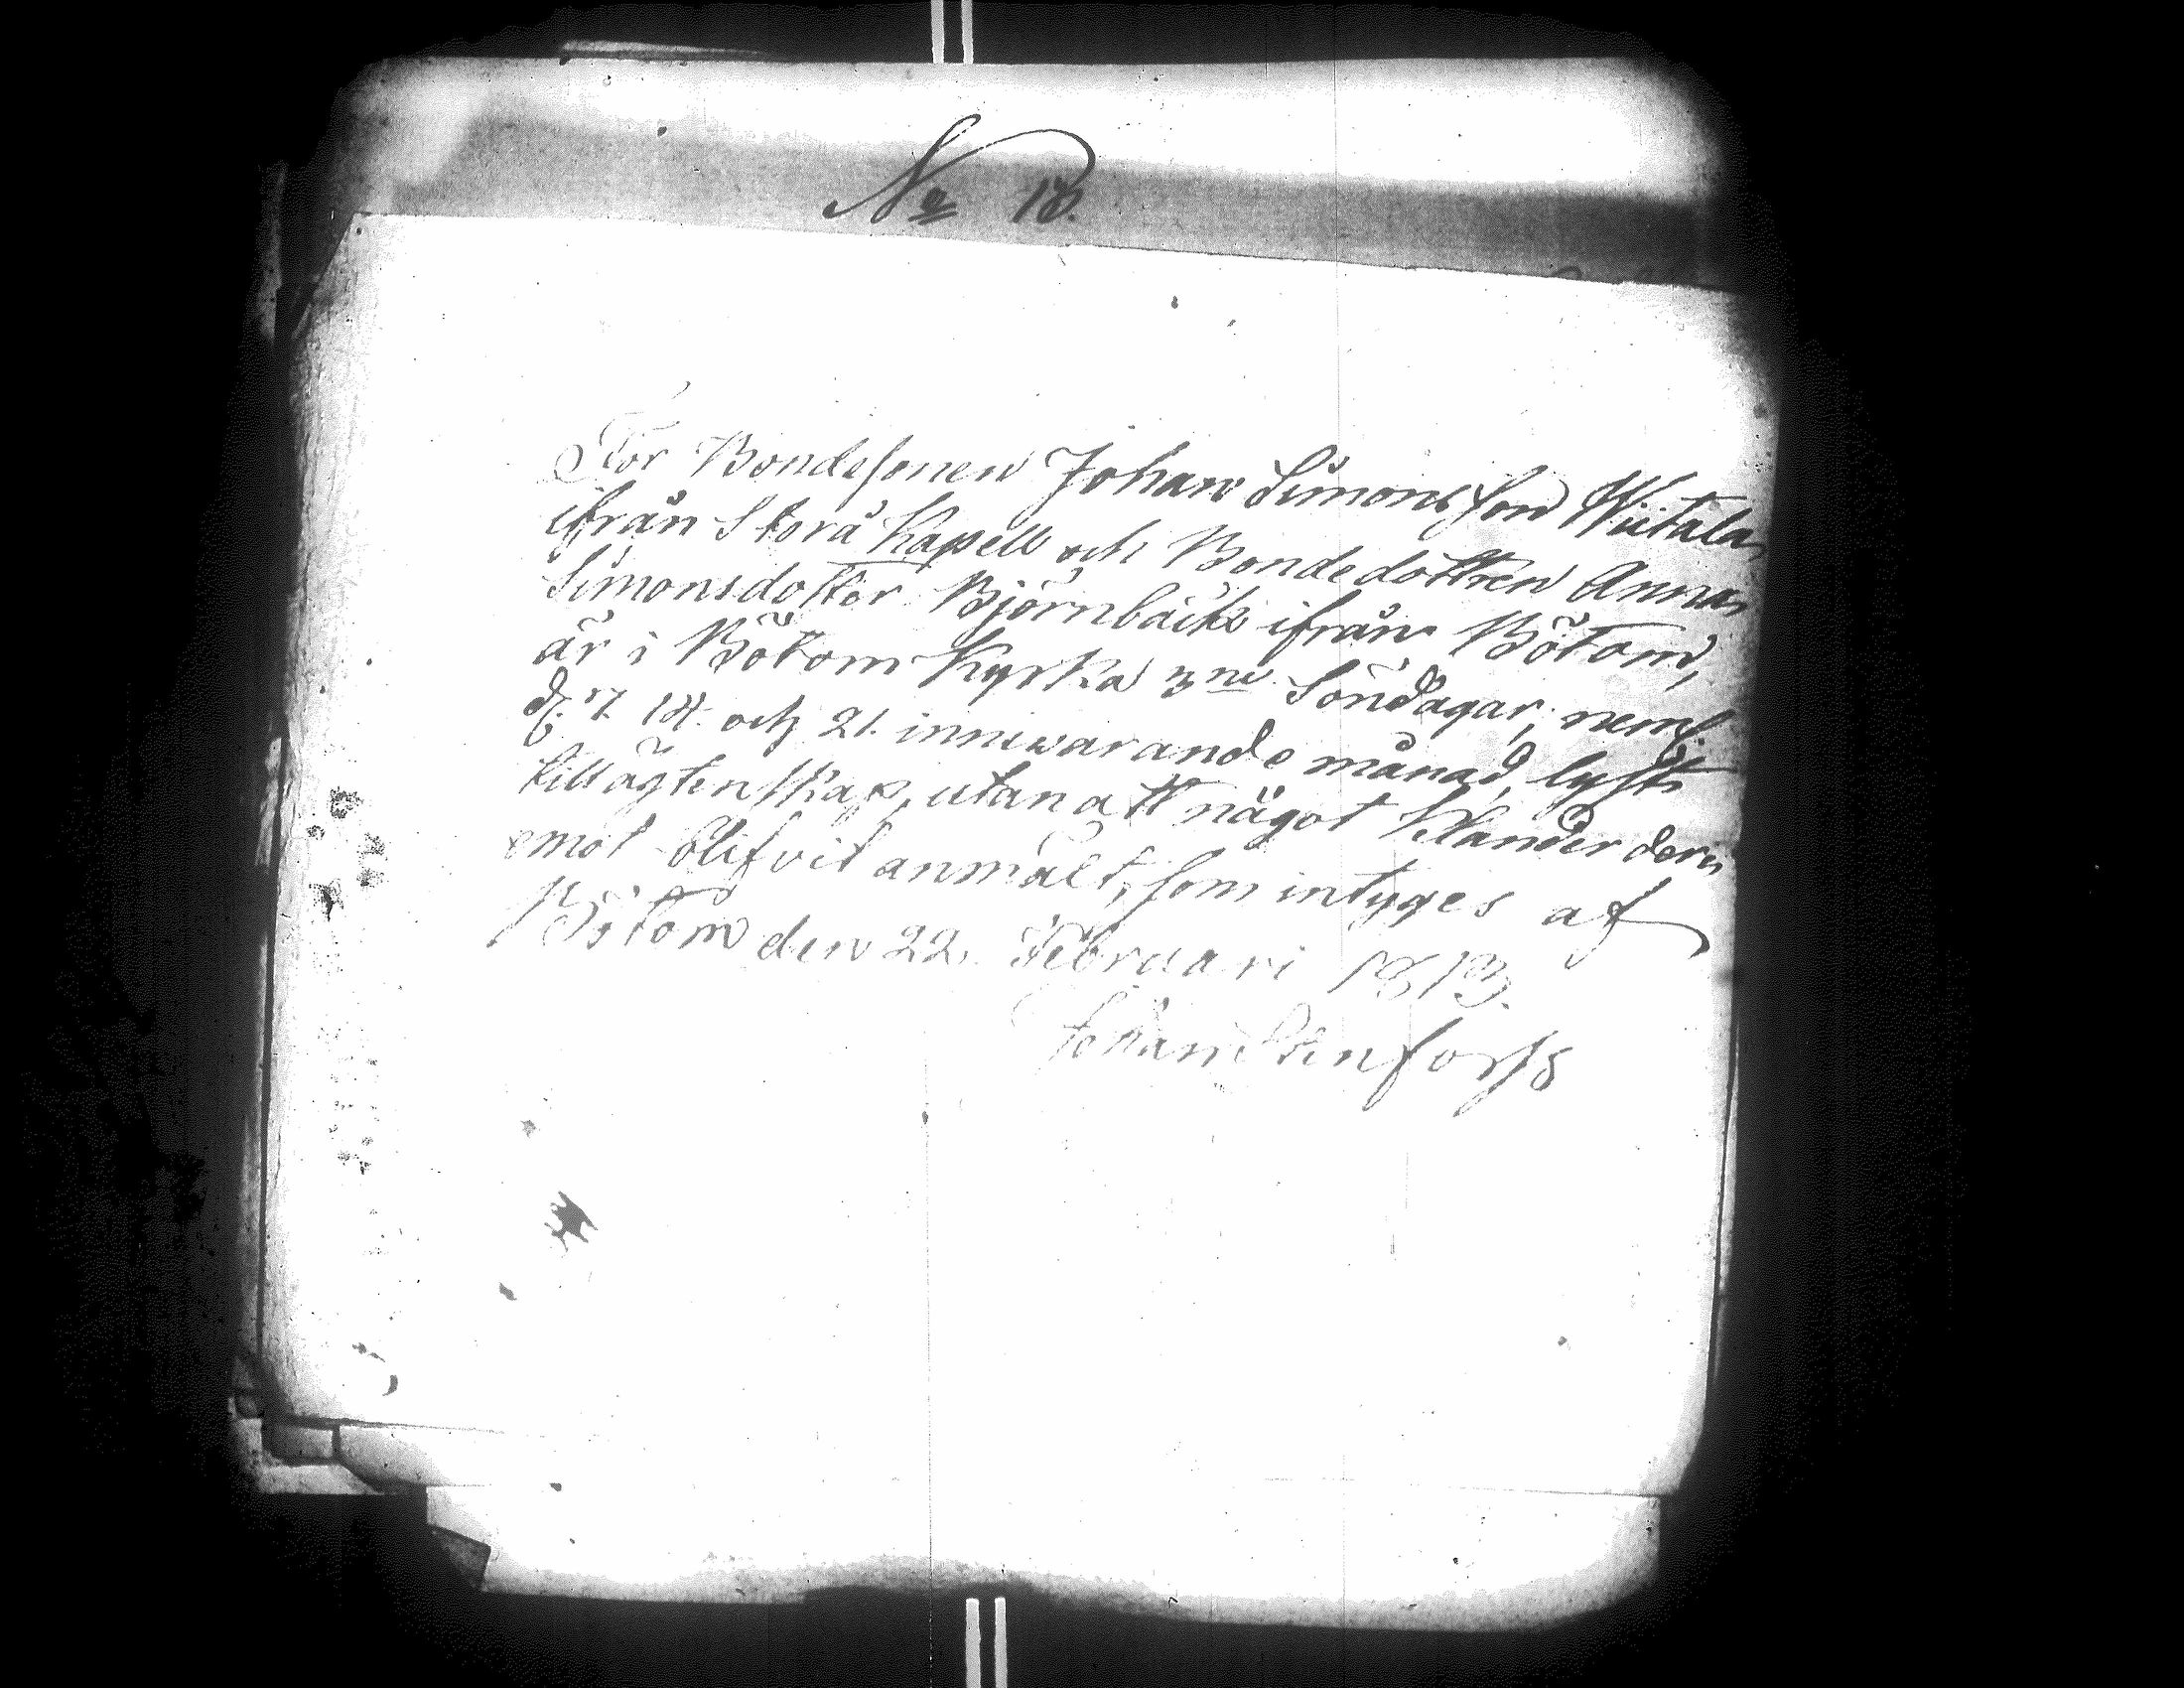 No 18.
För Bondesonen Johan Simonsson Wiitala
ifrån Storå Kapell och Bondedottren Anna
Simonsdotter Björnbäck ifrån Bötom,
är i Bötom Kyrka 3ne Söndagar, neml.
d. 7. 14. och 21. innewarande månad, lyst
till ägtenskap, utan att något klander der
emot blifvit anmält, som intyges af
Bötom den 22. Februari 1813.
Johan Stenforss